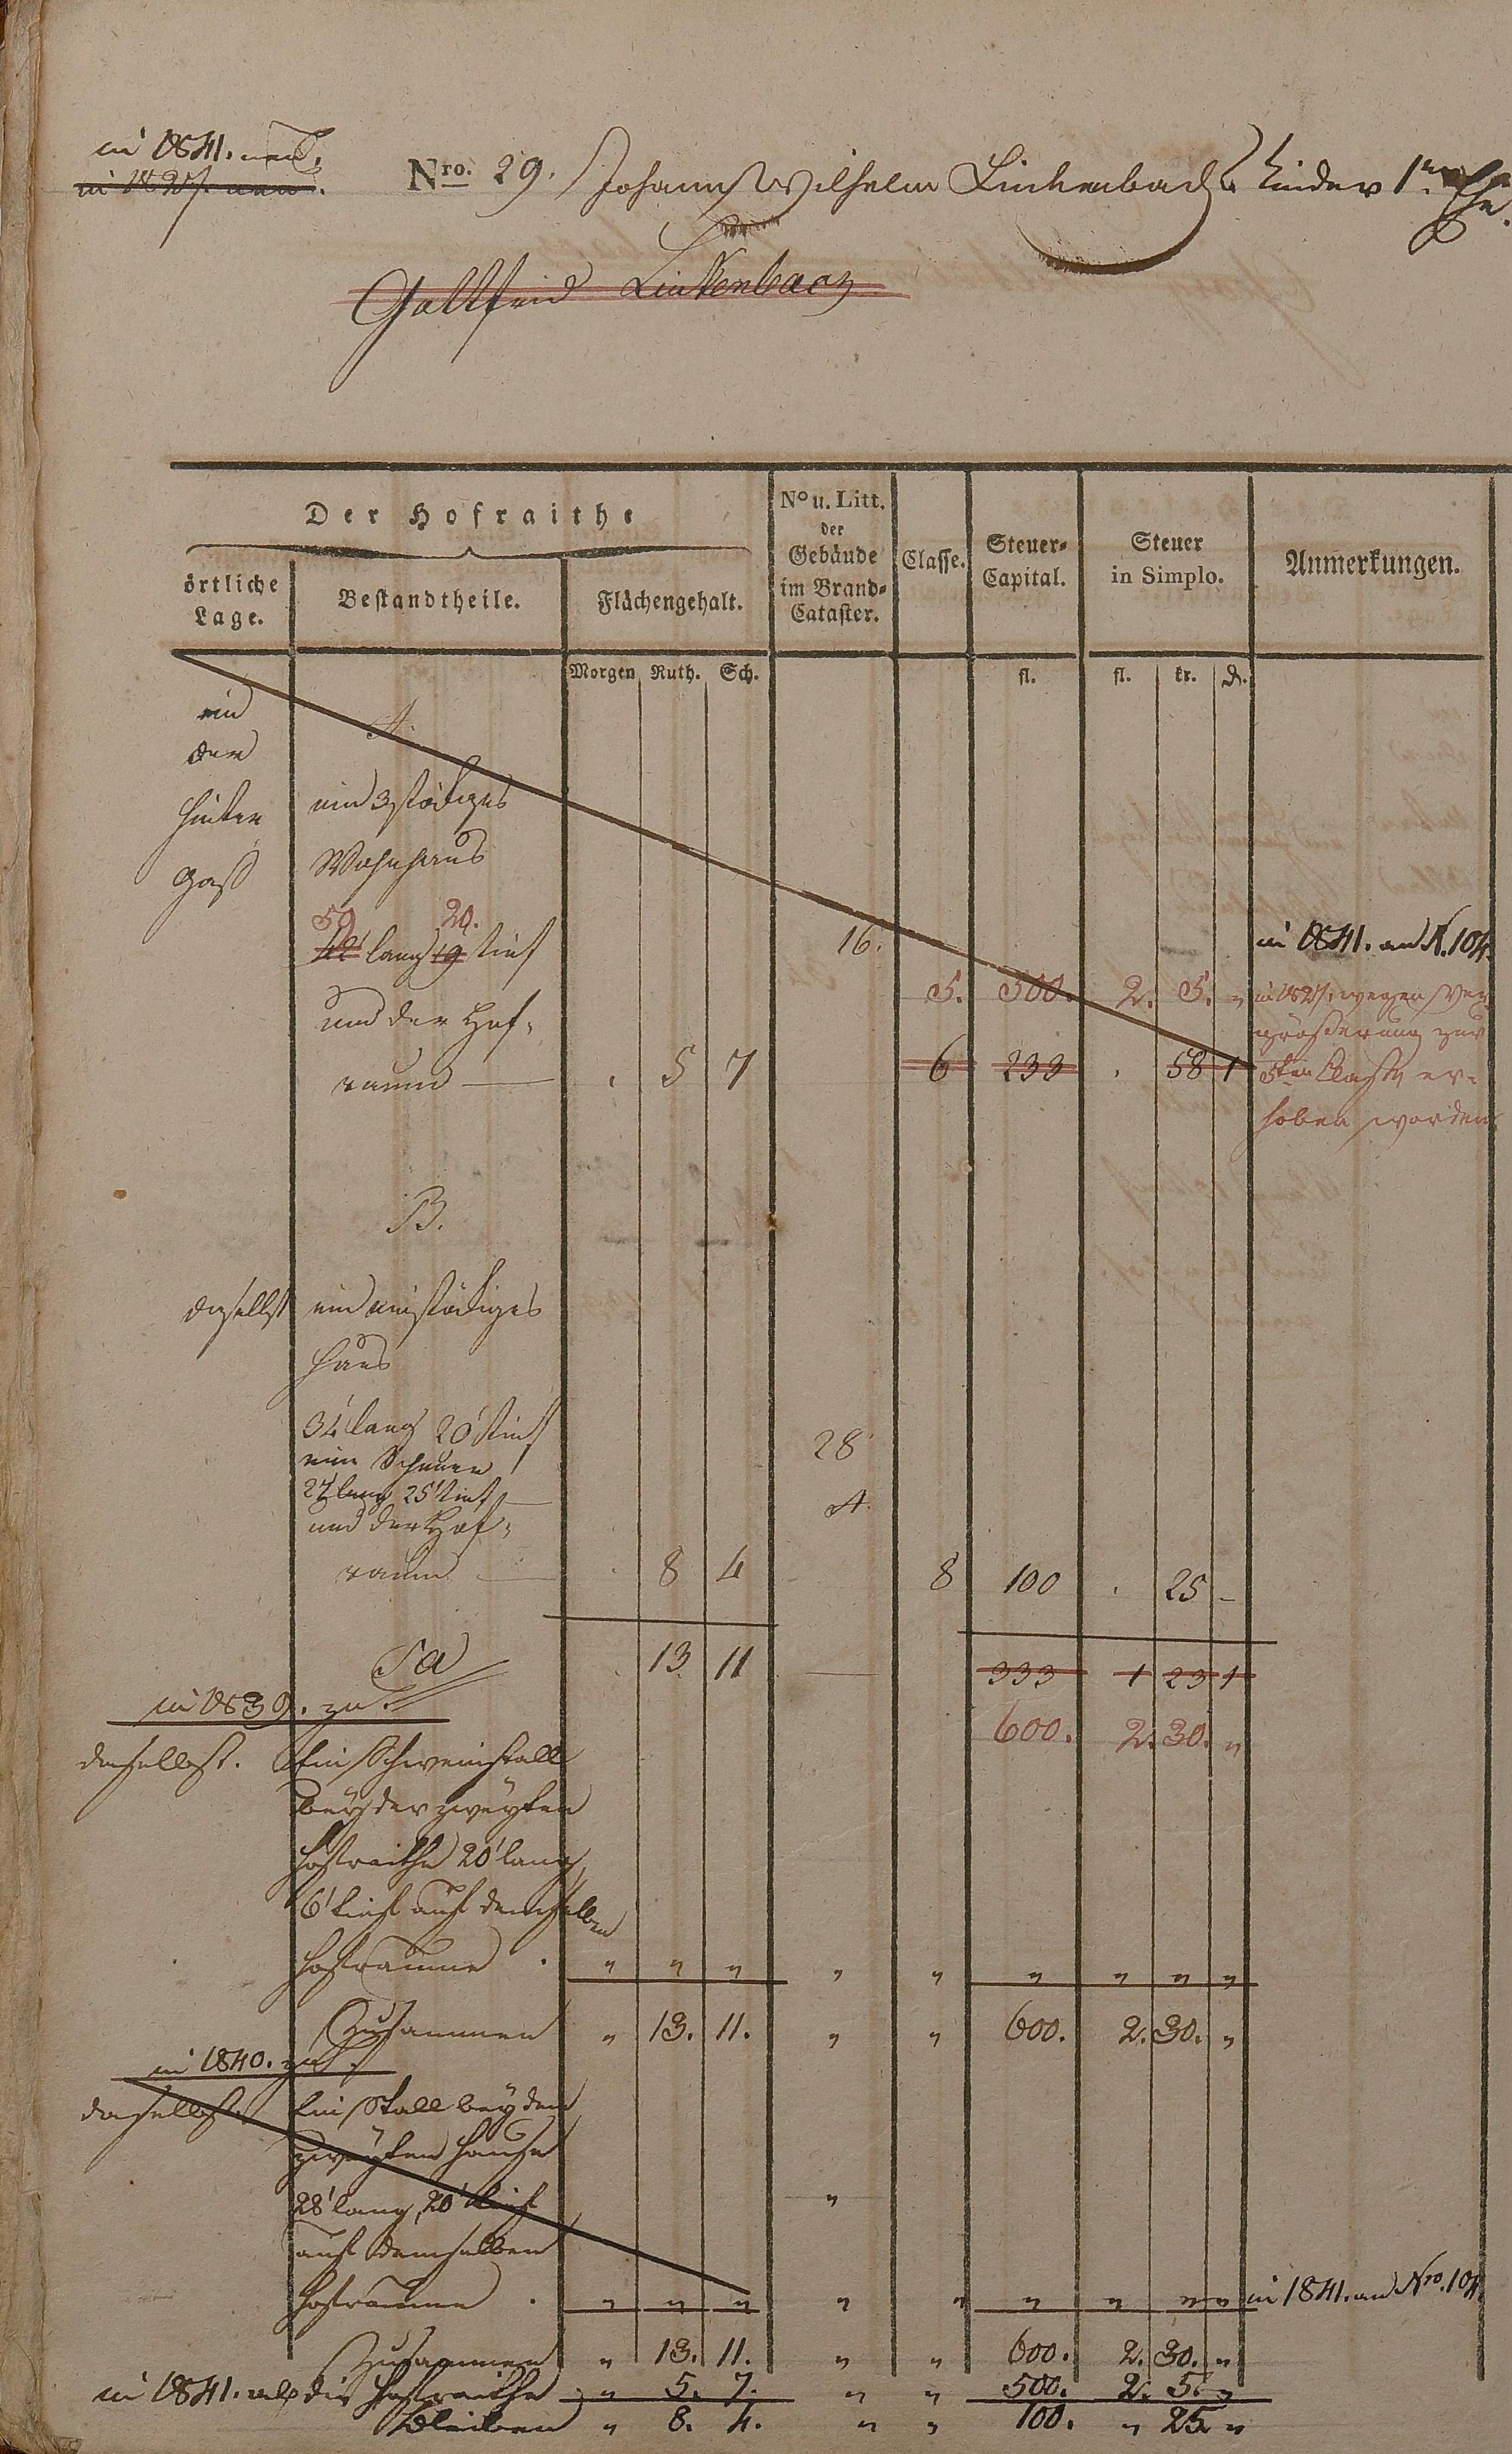 in 1841. neu.
in 1827. neu.
Nro. 29. Johann Wilhelm Linkenbachs Kinder 1r Ehe.
Gottfried Linkenbach
Der Hofraithe
örtliche Lage.
Bestandtheile.
Flächengehalt.
No u. Litt. der Gebäude im Brand-Cataster.
Classe.
Steuer-Capital.
Steuer in Simplo.
Anmerkungen.
Morgen Ruth. Sch. fl. fl. kr. d.
in A.
der
hinter ein 3stöckiges
Gaß Wohnhaus
50 20.
42 lang 19 tief 16. in 1841. an N. 104.
und der Hof- 5. 500. 2. 5. „ in 1827. wegen Ver-
größerung zur
raum — . 5 7 6 233 . 58 1 5ten Classe er-
hoben worden
B.
daselbst ein einstöckiges
Haus
34' lang 20' tief 28
eine Scheuer
27' lang 25' tief — A.
und der Hof-
raum — . 8 4 8 100 . 25 -
Sa . 13. 11 — 333 1 23 1
in 1839. zu. 600. 2. 30. „
daselbst. Ein Schweinstall
bey der zweyten
Hofraithe 20' lang,
6' tief auf demselben
Hofraume . „ „ „ „ „ „ „ „ „
Zusammen „ 13. 11. „ „ 600. 2. 30. „
in 1840. zu.
daselbst. Ein Stall bey dem
zweyten Hause
28' lang, 20' tief „
auf demselben
Hofraume . „ „ „ „ „ „ „ „ „ in 1841. an Nro. 104.
Zusammen „ 13. 11. „ „ 600. 2. 30. „
in 1841. ab die Hofraithe „ 5. 7. „ „ 500. 2. 5. „
bleiben „ 8. 4. „ „ 100. „ 25. „